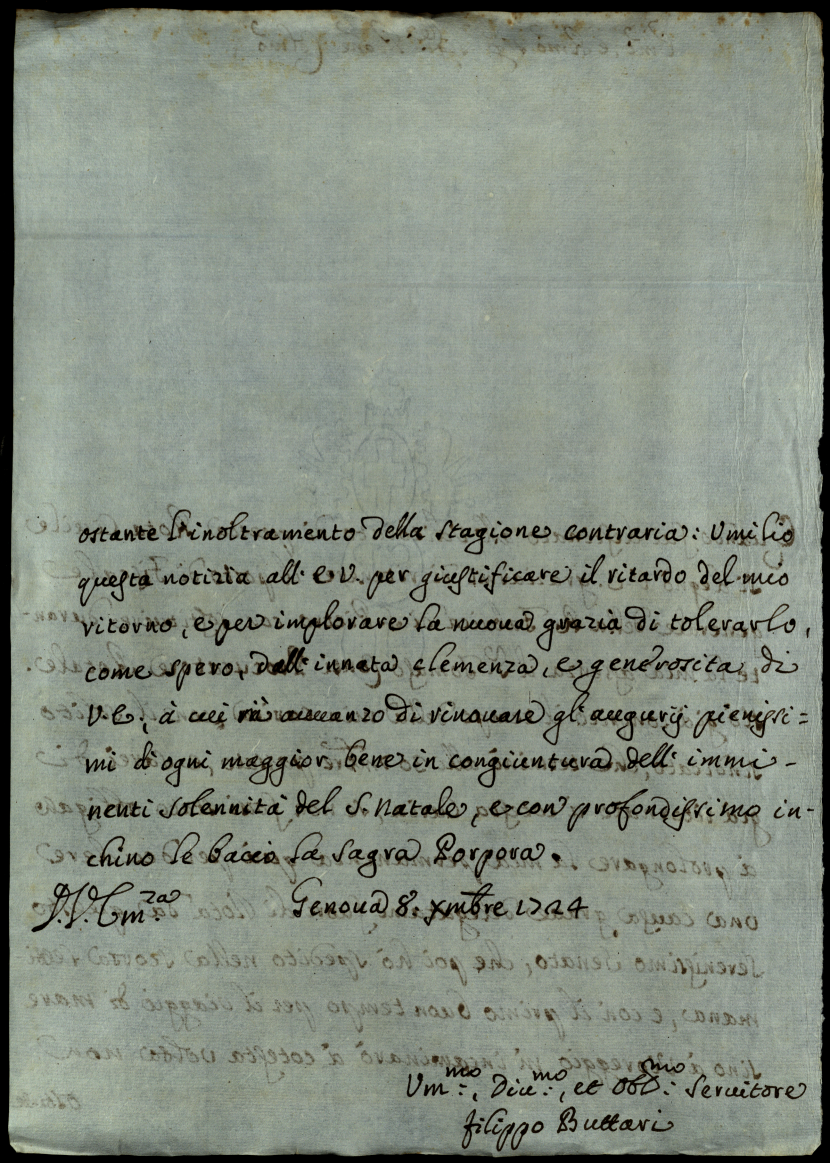 ostante l'inoltramento della stagione contraria: Umilio
questa notizia all' E V. per giustificare il ritardo del mio
ritorno, e per implorare la nuova grazia di tolerarlo,
come spero, dall' innata clemenza, e generosità di
V. E., à cui avanzo di rinouare gl' augurij pienissi=
mi di ogni maggior bene in congiuntura dell' immi-
nenti solennità del S. Natale, e con profondissimo in-
chino le bacio la Sagra Porpora.
Genoua 8. Xmbre 1724
Um.mo, Diu.mo, et Obb.mo Seruitore
filippo Buttari